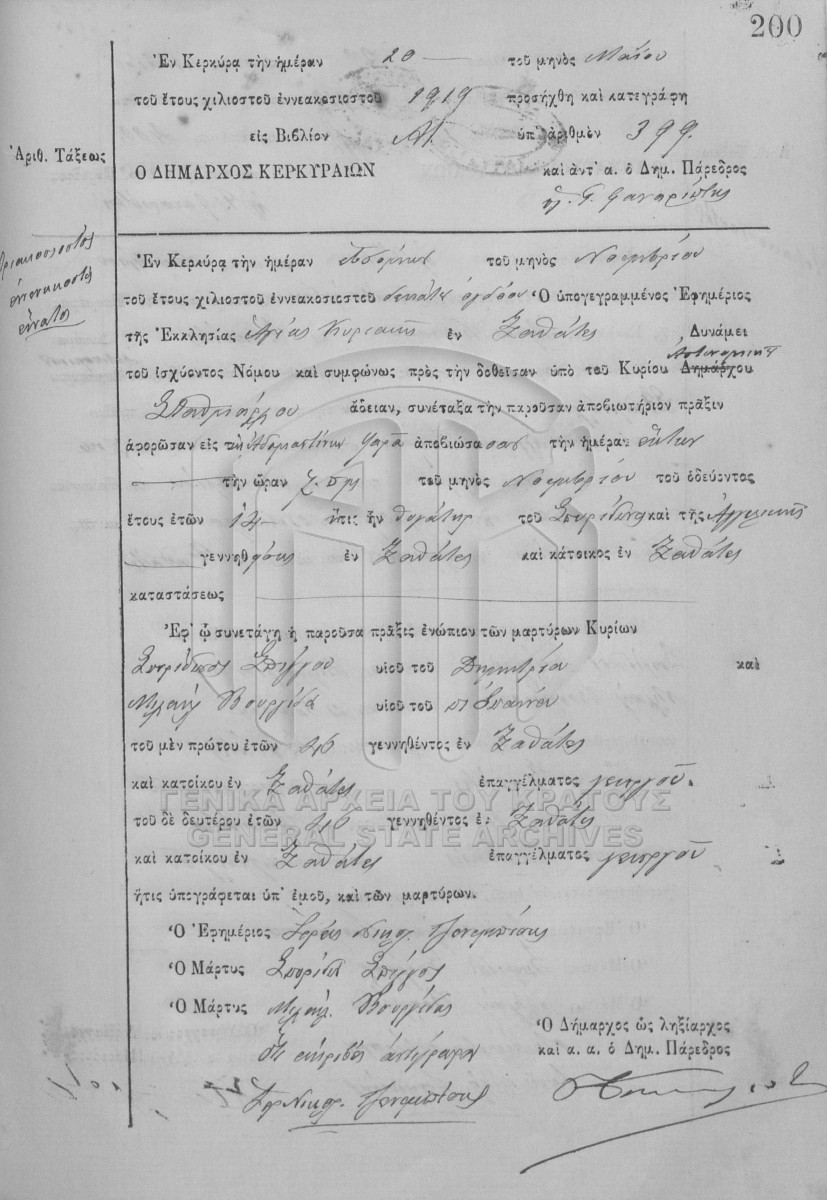 200
Ἐν Κερκύρᾳ τὴν ἡμέραν 20 τοῦ μηνὸς Μαΐου
τοῦ ἔτους χιλιοστοῦ ἐννεακοσιοστοῦ 1919 προσήχθη καὶ κατεγράφη
εἰς Βιβλίον ὑπ' ἀριθμὸν 399.
Ἀριθ. Τάξεως
Ο ΔΗΜΑΡΧΟΣ ΚΕΡΚΥΡΑΙΩΝ καὶ ἀντ' α. ὁ Δημ. Πάρεδρος
τριακοσιοστὸς
ἐνενηκοστὸς
ἔννατος
Ἐν Κερκύρᾳ τὴν ἡμέραν τοῦ μηνὸς Νοεμβρίου
τοῦ ἔτους χιλιοστοῦ ἐννεακοσιοστοῦ δεκάτου ὀγδόου Ὁ ὑπογεγραμμένος Ἐφημέριος
τῆς Ἐκκλησίας Ἁγίας Κυριακῆς ἐν Ζαβάτες Δυνάμει
τοῦ ἰσχύοντος Νόμου καὶ συμφώνως πρὸς τὴν δοθεῖσαν ὑπὸ τοῦ Κυρίου Δημάρχου
Σταθμάρχου ἄδειαν, συνέταξα τὴν παροῦσαν ἀποβιωτήριον πρᾶξιν
ἀφορῶσαν εἰς τὴν ἀποβιώσασαν τὴν ἡμέραν
τὴν ὥραν τοῦ μηνὸς Νοεμβρίου τοῦ ὁδεύοντος
ἔτους ἐτῶν ἥτις ἦν θυγάτηρ τοῦ Σπυρίδωνος καὶ τῆς Ἀγγελικῆς
γεννηθεῖσα ἐν Ζαβάτες καὶ κάτοικος ἐν Ζαβάτες
καταστάσεως
Ἐφ' ᾧ συνετάγη ἡ παροῦσα πρᾶξις ἐνώπιον τῶν μαρτύρων Κυρίων
Σπυρίδωνος Σπίγγου υἱοῦ τοῦ Δημητρίου καὶ
Μιχαὴλ Βουργίδα υἱοῦ τοῦ Ἰωάννου
τοῦ μὲν πρώτου ἐτῶν 46 γεννηθέντος ἐν Ζαβάτες
καὶ κατοίκου ἐν Ζαβάτες ἐπαγγέλματος γεωργοῦ
ΓΕΝΙΚΑ ΑΡΧΕΙΑ ΤΟΥ ΚΡΑΤΟΥΣ
τοῦ δὲ δευτέρου ἐτῶν γεννηθέντος ἐν Ζαβάτες
GENERAL STATE ARCHIVES
καὶ κατοίκου ἐν Ζαβάτες ἐπαγγέλματος γεωργοῦ
ἥτις ὑπογράφεται ὑπ' ἐμοῦ, καὶ τῶν μαρτύρων.
Ὁ Ἐφημέριος Ἱερεὺς Νικολ.
Ὁ Μάρτυς Σπυρίδ. Σπίγγος
Ὁ Μάρτυς Μιχαήλ. Βουργίδας
Ὁ Δήμαρχος ὡς ληξίαρχος
καὶ α. α. ὁ Δημ. Πάρεδρος
ἀκριβὲς ἀντίγραφον
Ἱερ Νικολ.